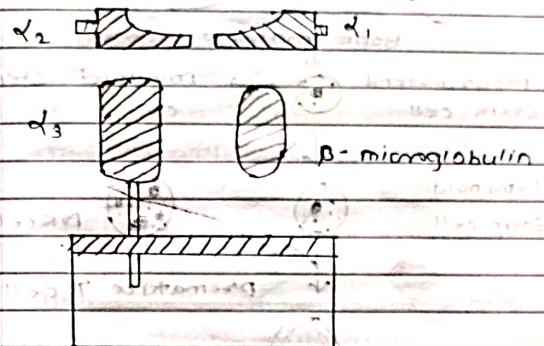 α₂ α₁
α₃
β-microglobulin